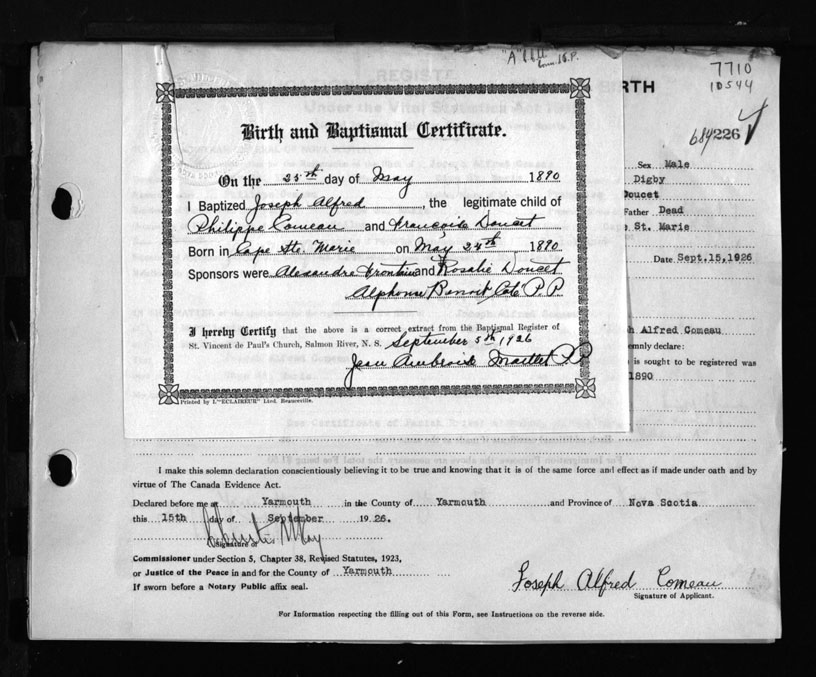 "A"
7710
10544
REGISTE
BIRTH
Under the Vital Statistics Act
684226
Birth and Baptismal Certificate.
On the 25th day of May 1890
I Baptized Joseph Alfred, the legitimate child of
Philippe Comeau and Françoise Doucet
Born in Cape Ste. Marie on May 24th 1890
Sponsors were Alexandre Frontain and Rosalie Doucet
Alphonse Benoit Coté P.P.
I hereby Certify that the above is a correct extract from the Baptismal Register of
St. Vincent de Paul's Church, Salmon River, N. S. September 5th 1926
Jean Ambroise Maillet P.P.
Printed by L'"ECLAIREUR" Lted. Beauceville.
Sex Male
Digby
Doucet
Father Dead
St. Marie
Date Sept.15,1926
h Alfred Comeau
emnly declare:
is sought to be registered was
1890
I make this solemn declaration conscientiously believing it to be true and knowing that it is of the same force and effect as if made under oath and by
virtue of The Canada Evidence Act.
Declared before me at Yarmouth in the County of Yarmouth and Province of Nova Scotia
this 15th day of September 1926.
Signature of
Commissioner under Section 5, Chapter 38, Revised Statutes, 1923,
or Justice of the Peace in and for the County of Yarmouth
If sworn before a Notary Public affix seal.
Joseph Alfred Comeau
Signature of Applicant.
For Information respecting the filling out of this Form, see Instructions on the reverse side.